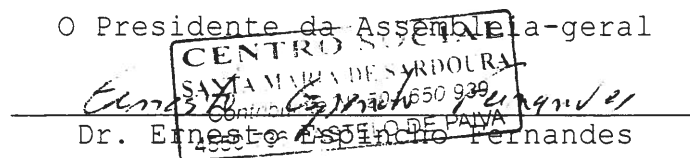 O Presidente da Assembleia-geral
CENTRO SOCIAL
SANTA MARIA DE SARDOURA
650 939
CASTELO DE PAIVA
Dr. Ernesto Espincho Fernandes